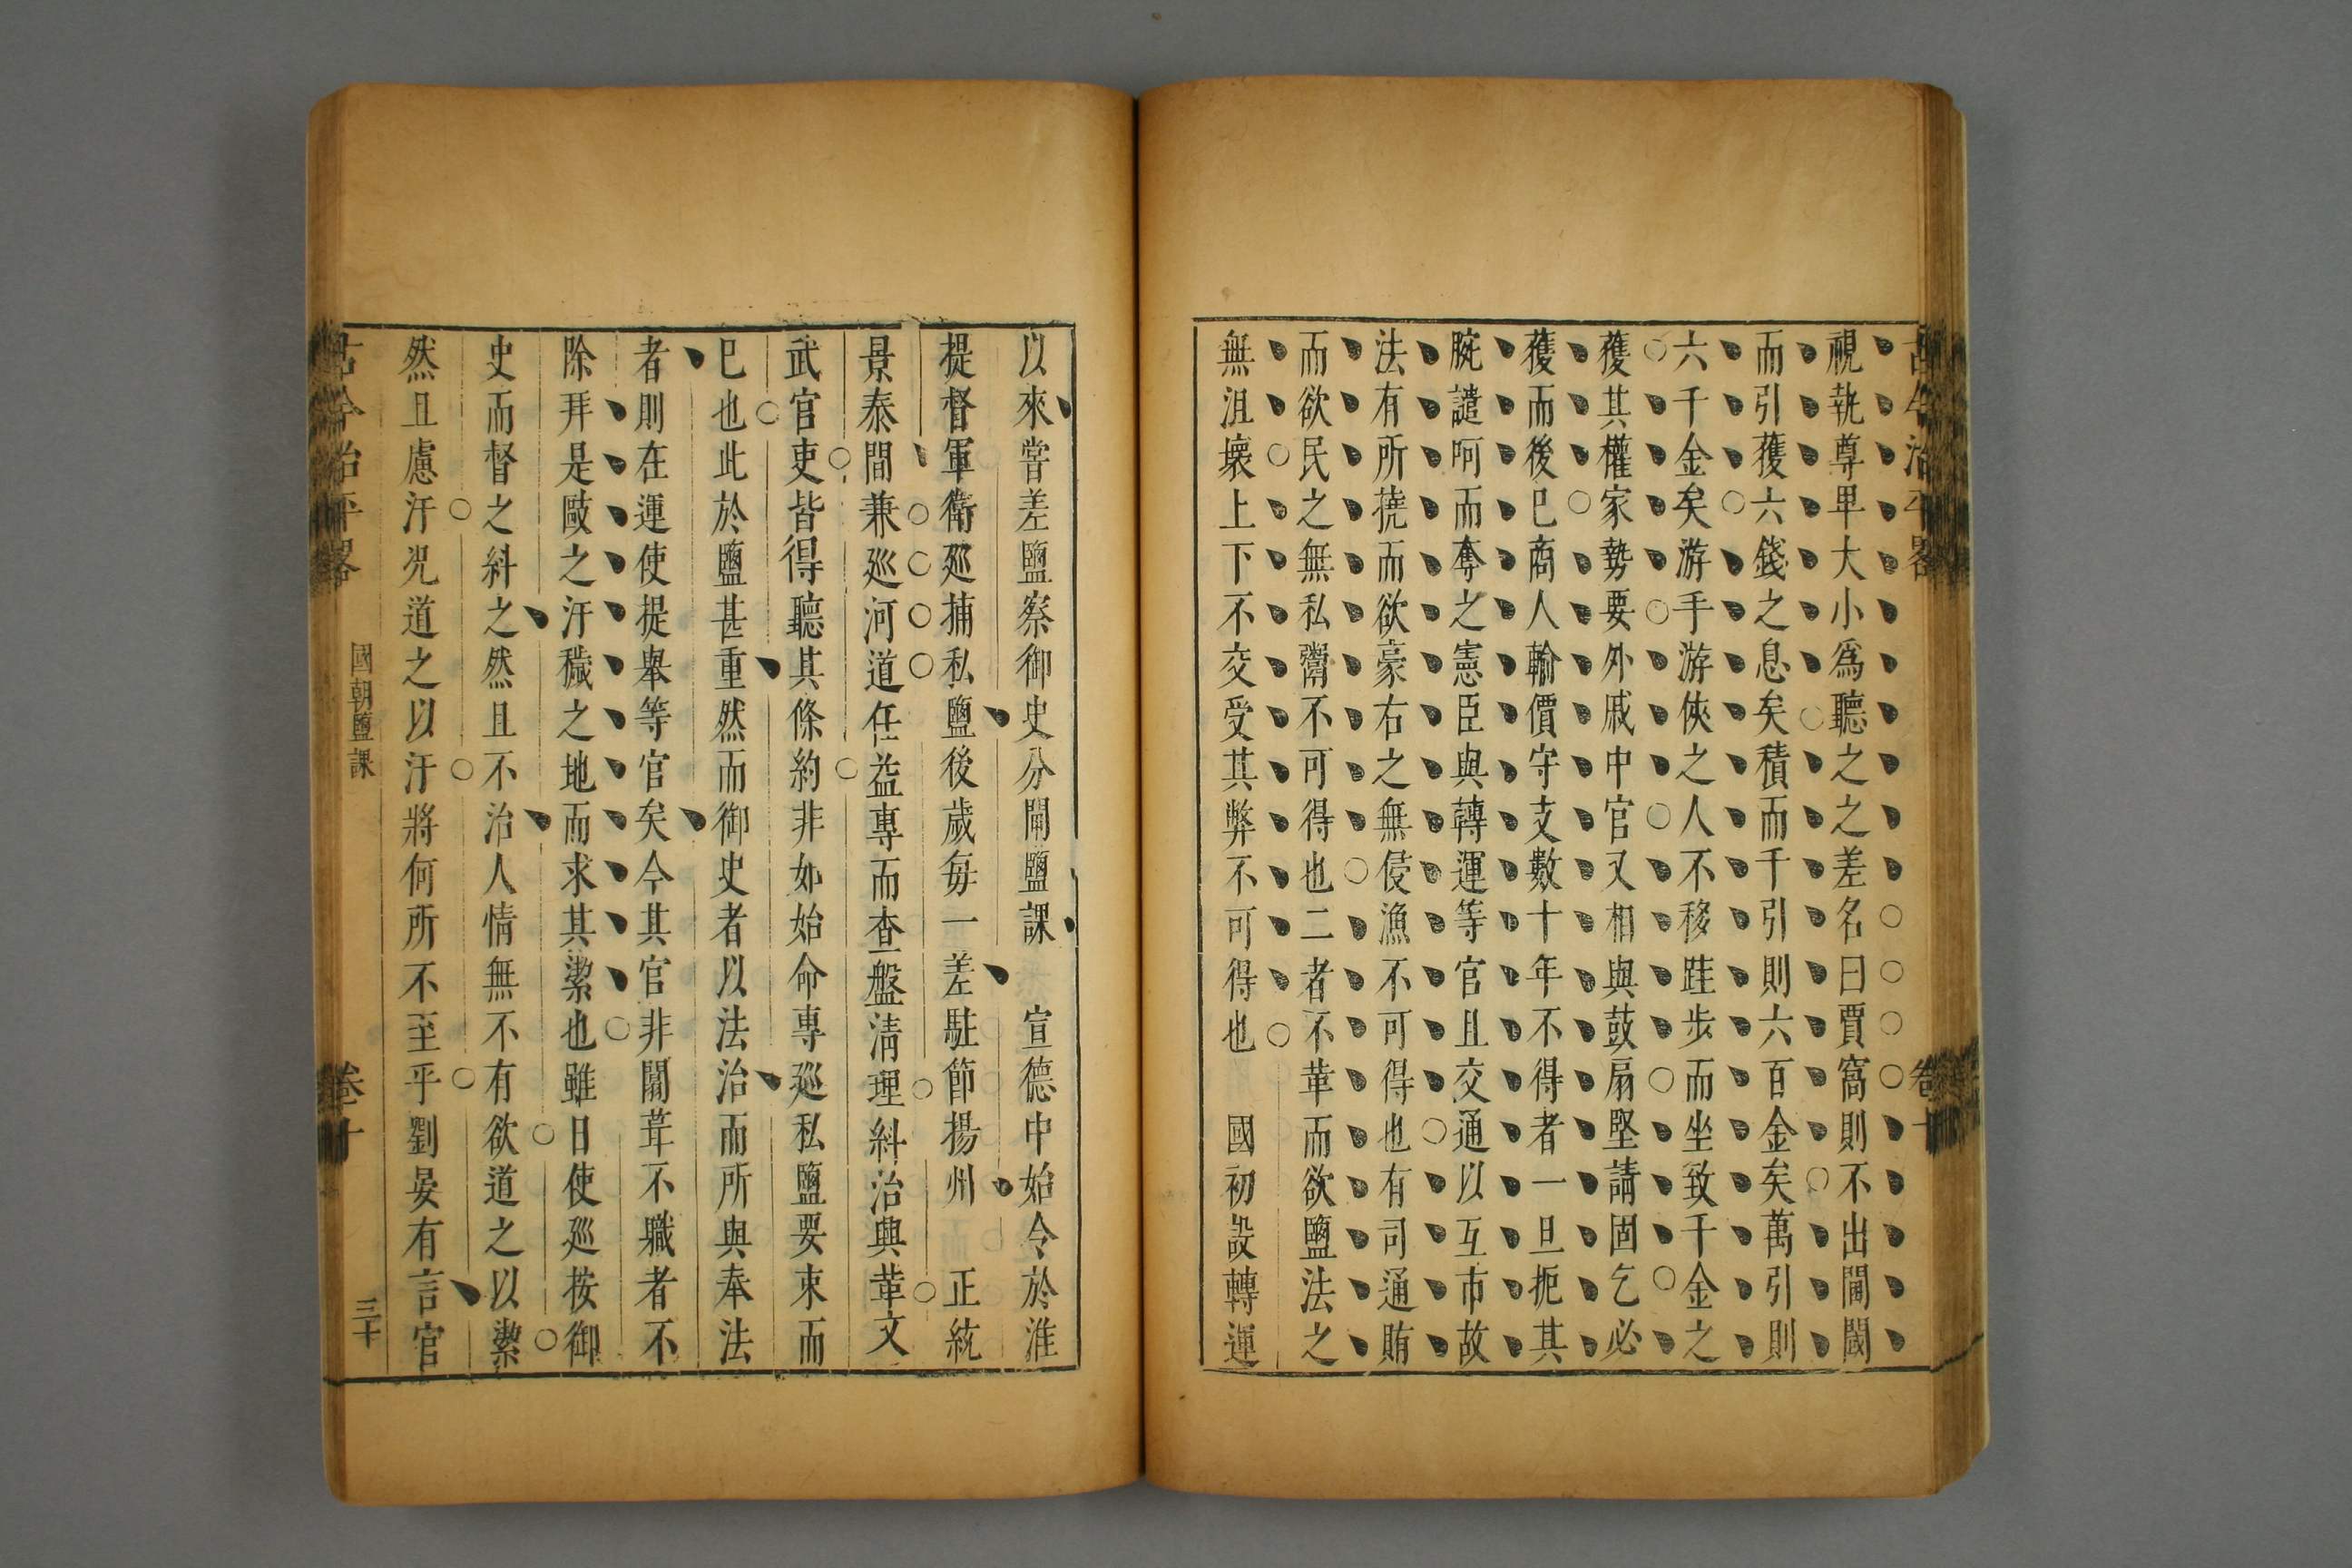 古今治平畧 卷十
視執尊卑大小爲聽之之差名曰賈窩則不出閫閾
而引獲六錢之息矣積而千引則六百金矣萬引則
六千金矣游手游俠之人不移跬步而坐致千金之
獲其權家勢要外戚中官又相與鼓扇堅請固乞必
獲而後已商人輸價守支數十年不得者一旦扼其
腕譴呵而奪之憲臣與轉運等官且交通以互市故
法有所撓而欲豪右之無侵漁不可得也有司通賄
而欲民之無私鬻不可得也二者不革而欲鹽法之
無沮壞上下不交受其弊不可得也 國初設轉運
以來嘗差鹽察御史分閘鹽課 宣德中始令於淮
提督軍衛廵捕私鹽後歲每一差駐節揚州 正統
景泰間兼廵河道任益專而查盤淸理糾治興革文
武官吏皆得聽其條約非如始命專廵私鹽要束而
巳也此於鹽甚重然而御史者以法治而所與奉法
者則在運使提舉等官矣今其官非闒茸不職者不
除拜是敺之汙穢之地而求其潔也雖日使廵按御
史而督之糾之然且不治人情無不有欲道之以潔
然且慮汙況道之以汙將何所不至乎劉晏有言官
古今治平畧 國朝鹽課 卷十 三十